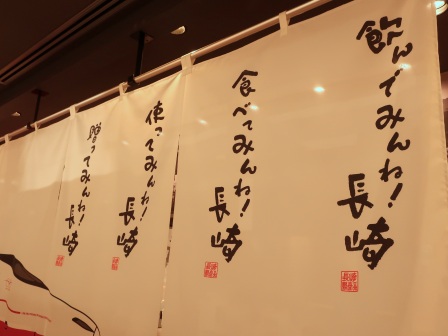 飲んでみんね！長崎
食べてみんね！長崎
使ってみんね！長崎
贈ってみんね！長崎